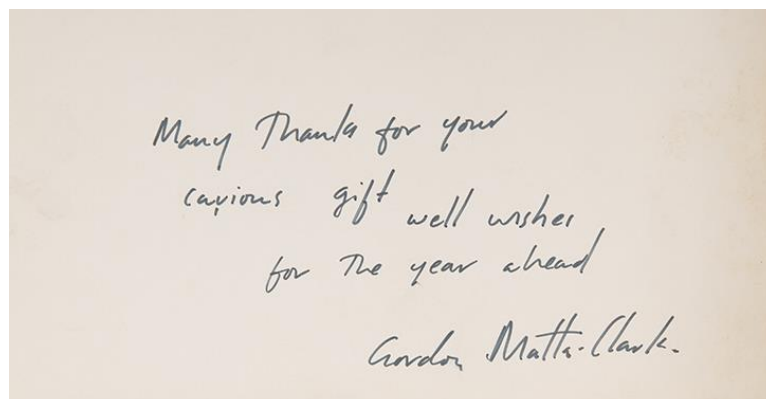 Many Thanks for your
gift well wishes
for The year ahead
Gordon Matta-Clark.